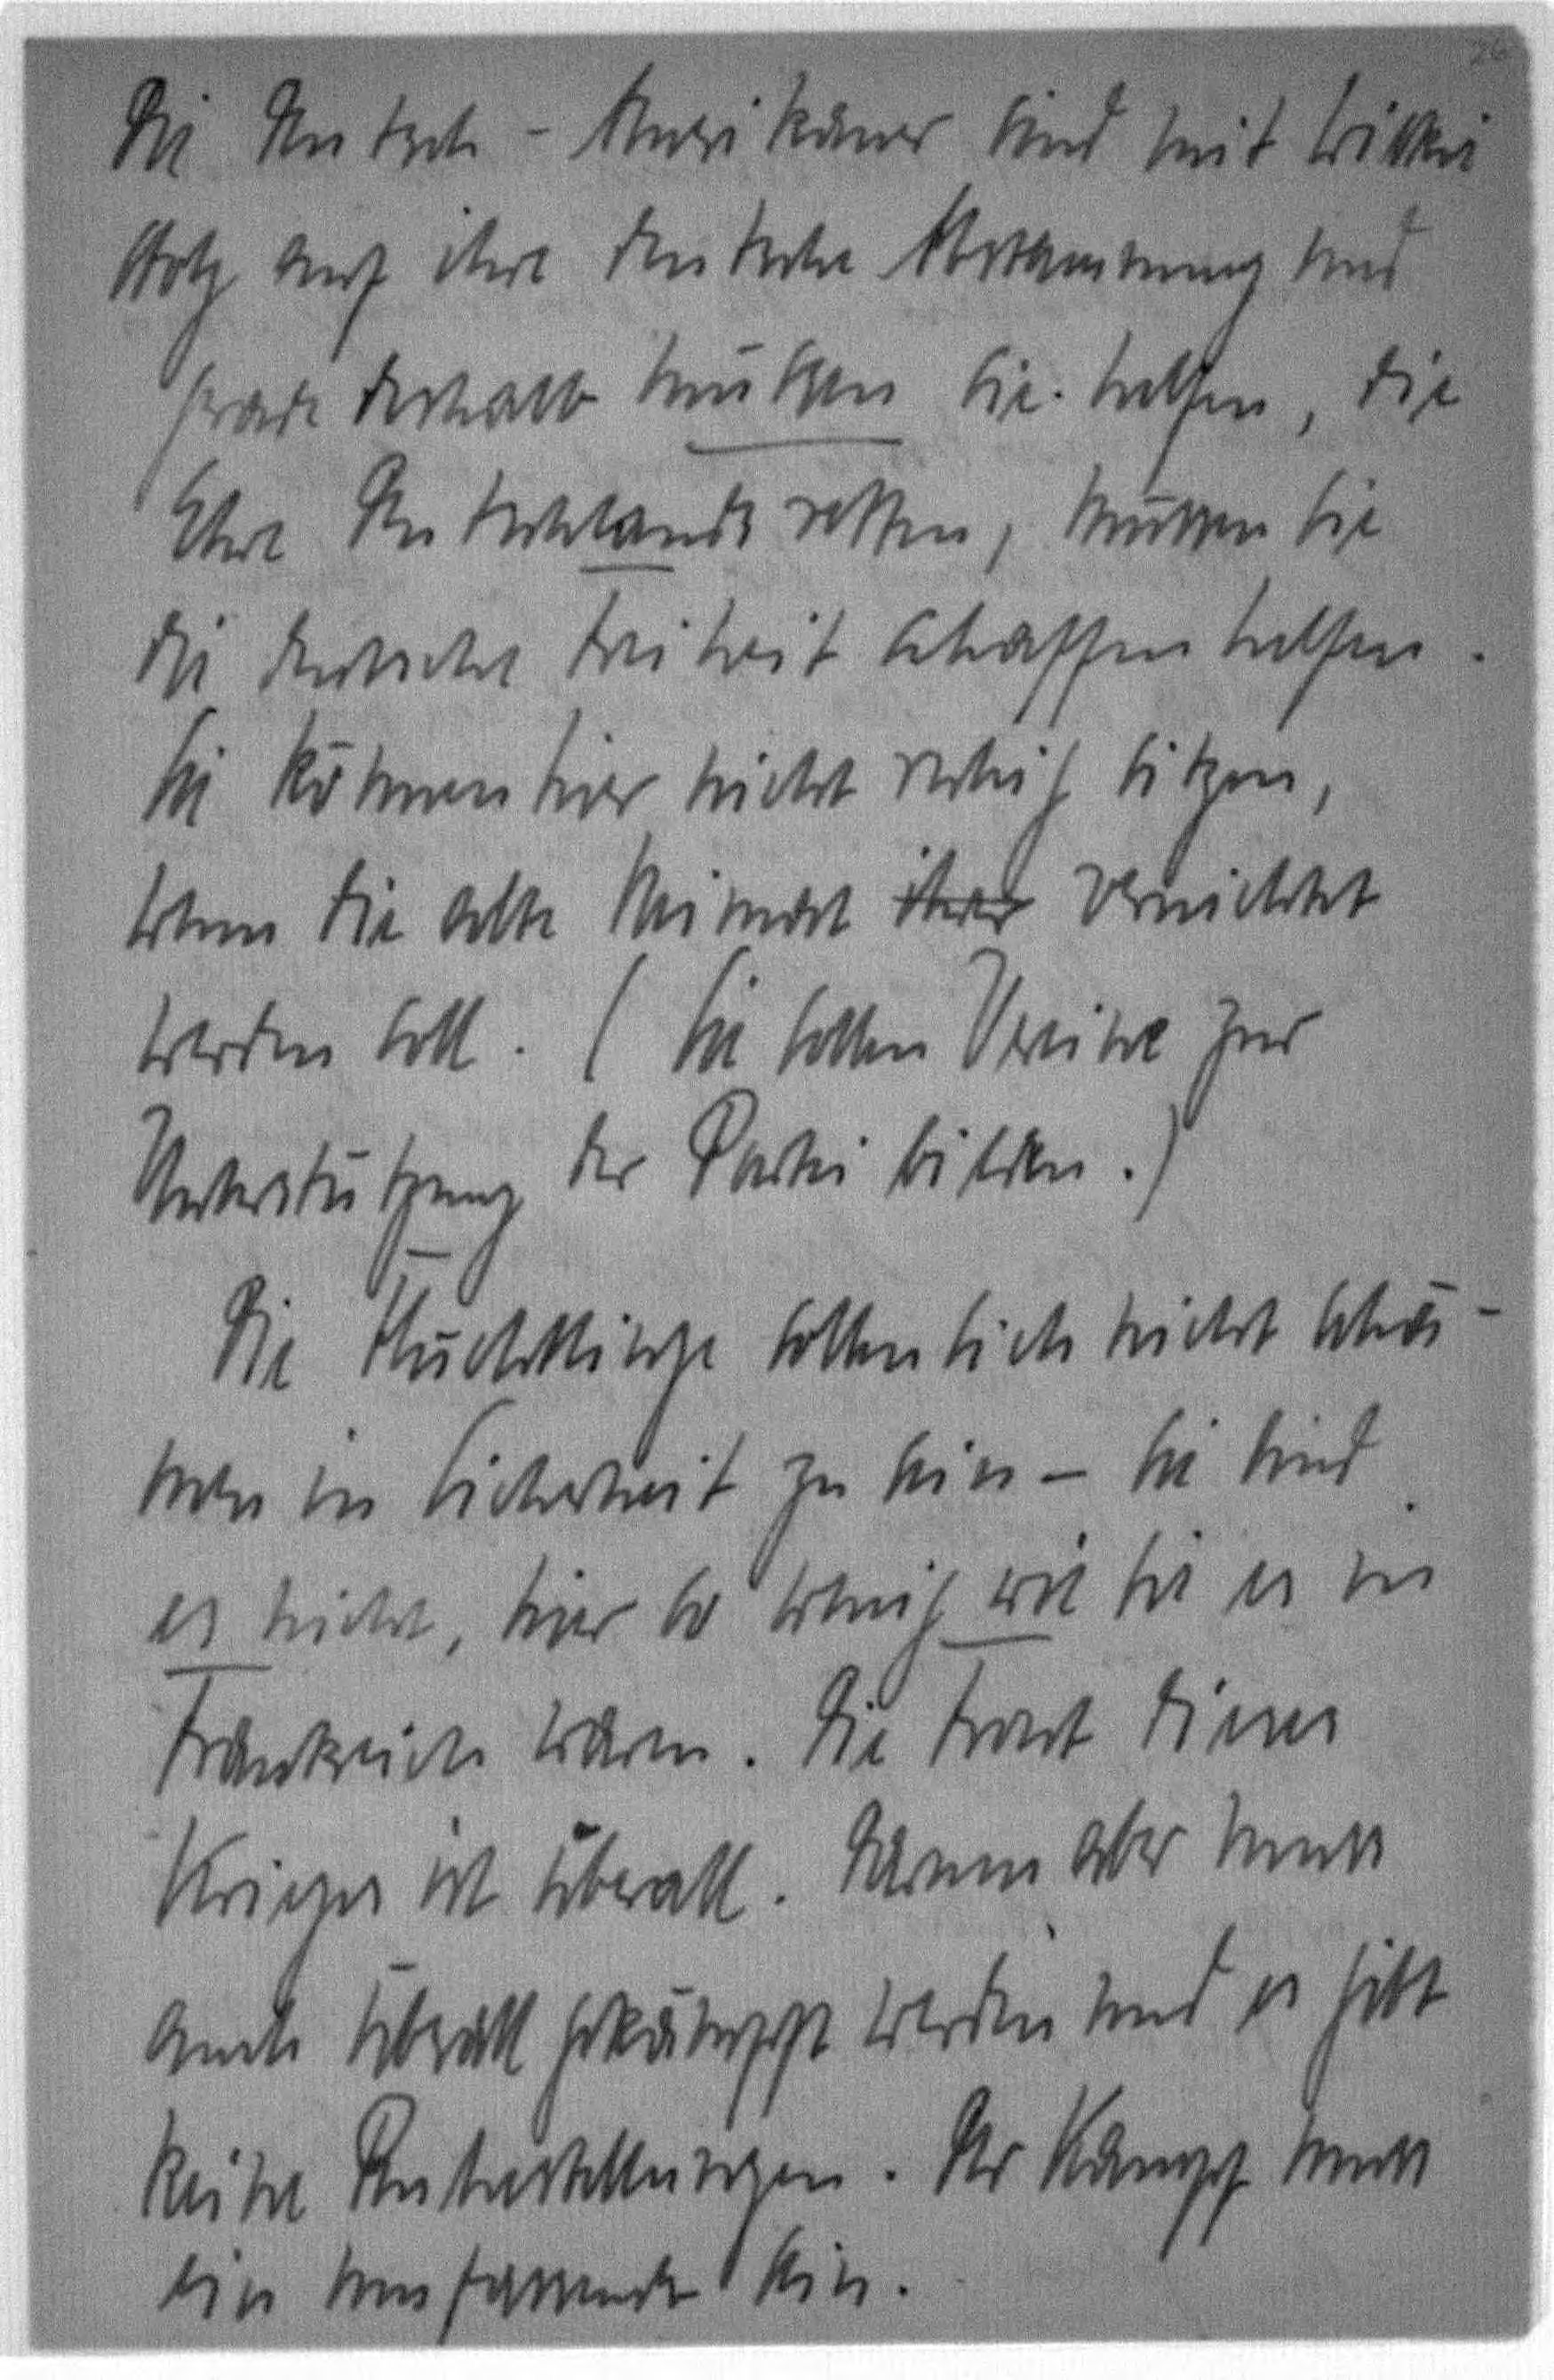 26
Die Deutsch-Amerikaner sind mit Willkie
stolz auf ihre deutsche Abstammung und
grade deshalb müssen sie helfen, die
Ehre Deutschlands retten, müssen sie
die deutsche Freiheit schaffen helfen.
Sie können hier nicht ruhig sitzen,
wenn die alte Heimat ihrer vernichtet
werden soll. (Sie sollen Vereine zur
Unterstützung der Partei bilden.)
Die Flüchtlinge sollen sich nicht schä-
men in Sicherheit zu sein – sie sind
es nicht, hier so wenig wie sie es in
Frankreich waren. Die Front dieses
Krieges ist überall. Darum aber muss
auch überall gekämpft werden und es gibt
keine Ruhestellungen. Der Kampf muss
ein umfassender sein.